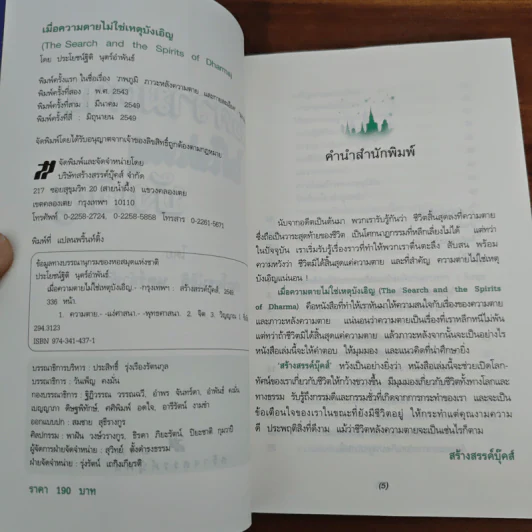 เมื่อความตายไม่ใช่เหตุบังเอิญ
(The Search and the Spirits of Dharma)
โดย ประโยชน์ฐิติ นุตร์อำพันธ์
พิมพ์ครั้งแรก ในชื่อเรื่อง วาพภูมิ ภาวะหลังความตาย
พิมพ์ครั้งที่สอง : พ.ค. 2543
พิมพ์ครั้งที่สาม : มีนาคม 2549
พิมพ์ครั้งที่สี่ : มิถุนายน 2549
จัดพิมพ์โดยได้รับอนุญาตจากเจ้าของลิขสิทธิ์ถูกต้องตามกฎหมาย
จัดพิมพ์และจัดจำหน่ายโดย
บริษัทสร้างสรรค์บุ๊คส์ จำกัด
217 ซอยสุขุมวิท 20 (สายน้ำผึ้ง) แขวงคลองเตย
เขตคลองเตย กรุงเทพฯ 10110
โทรศัพท์ 0-2258-2724, 0-2258-5858 โทรสาร 0-2261-5671
พิมพ์ที่ แปลนพริ้นท์ติ้ง
ข้อมูลทางบรรณานุกรมของหอสมุดแห่งชาติ
ประโยชน์ฐิติ นุตร์อำพันธ์.
เมื่อความตายไม่ใช่เหตุบังเอิญ.- กรุงเทพฯ : สร้างสรรค์บุ๊คส์
336 หน้า.
1. ความตาย.- -แง่ศาสนา.- -พุทธศาสนา. 2. จิต 3. วิญญาณ
294.3123
ISBN 974-341-437-1
บรรณาธิการบริหาร : ประสิทธิ์ รุ่งเรืองรัตนกุล
บรรณาธิการ : วันเพ็ญ คงมั่น
กองบรรณาธิการ : ฐิฏิวรรณ วรรณฉวี, อำพร จันทร์ตา, อำพันธ์ คงมั่น
เบญญาภา ดิษฐพิทักษ์, ศศิพิมพ์ อดใจ, อารีรัตน์ งามขำ
ออกแบบปก : สมชาย สุธีรางกูร
ศิลปกรรม : พาฝัน วงษ์วรางกูร, ธิรดา ภิยะรัตน์, ปิยะชาติ กุมวาปี
ผู้จัดการฝ่ายจัดจำหน่าย : สุวิทย์ ตั้งดำรงธรรม
ฝ่ายจัดจำหน่าย : รุ่งรัตน์ เถกิงเกียรติ
ราคา 190 บาท
คำนำสำนักพิมพ์
นับจากอดีตเป็นต้นมา พวกเรารับรู้กันว่า ชีวิตสิ้นสุดลงที่ความตาย
ซึ่งถือเป็นวาระสุดท้ายของชีวิต เป็นโศกนาฏกรรมที่หลีกเลี่ยงไม่ได้ แต่ทว่า
ในปัจจุบัน เราเริ่มรับรู้เรื่องราวที่ทำให้พวกเราตื่นตะลึง สับสน พร้อม
ความหวังว่า ชีวิตมิได้สิ้นสุดแค่ความตาย และที่สำคัญ ความตายไม่ใช่เหตุ
บังเอิญแน่นอน !
เมื่อความตายไม่ใช่เหตุบังเอิญ (The Search and the Spirits of
Dharma) คือหนังสือที่ทำให้เราหันมาให้ความสนใจกับเรื่องของความตาย
และภาวะหลังความตาย แน่นอนว่าความตายเป็นเรื่องที่เราหลีกหนีไม่พ้น
แต่ทว่าถ้าชีวิตมิได้สิ้นสุดแค่ความตาย แล้วภาวะหลังจากนั้นจะเป็นอย่างไร
หนังสือเล่มนี้จะให้คำตอบ ให้มุมมอง และแนวคิดที่น่าศึกษายิ่ง
'สร้างสรรค์บุ๊คส์' หวังเป็นอย่างยิ่งว่า หนังสือเล่มนี้จะช่วยเปิดโลก-
ทัศน์ของเราเกี่ยวกับชีวิตให้กว้างขวางขึ้น มีมุมมองเกี่ยวกับชีวิตทั้งทางโลกและ
ทางธรรม รับรู้ถึงกรรมดีและกรรมชั่วที่เกิดจากการกระทำของเรา และจะเป็น
ข้อเตือนใจของเราในขณะที่ยังมีชีวิตอยู่ ให้กระทำแต่คุณงามความ
ดี ประพฤติสิ่งที่ดีงาม แม้ว่าชีวิตหลังความตายจะเป็นเช่นไรก็ตาม
สร้างสรรค์บุ๊คส์
(5)